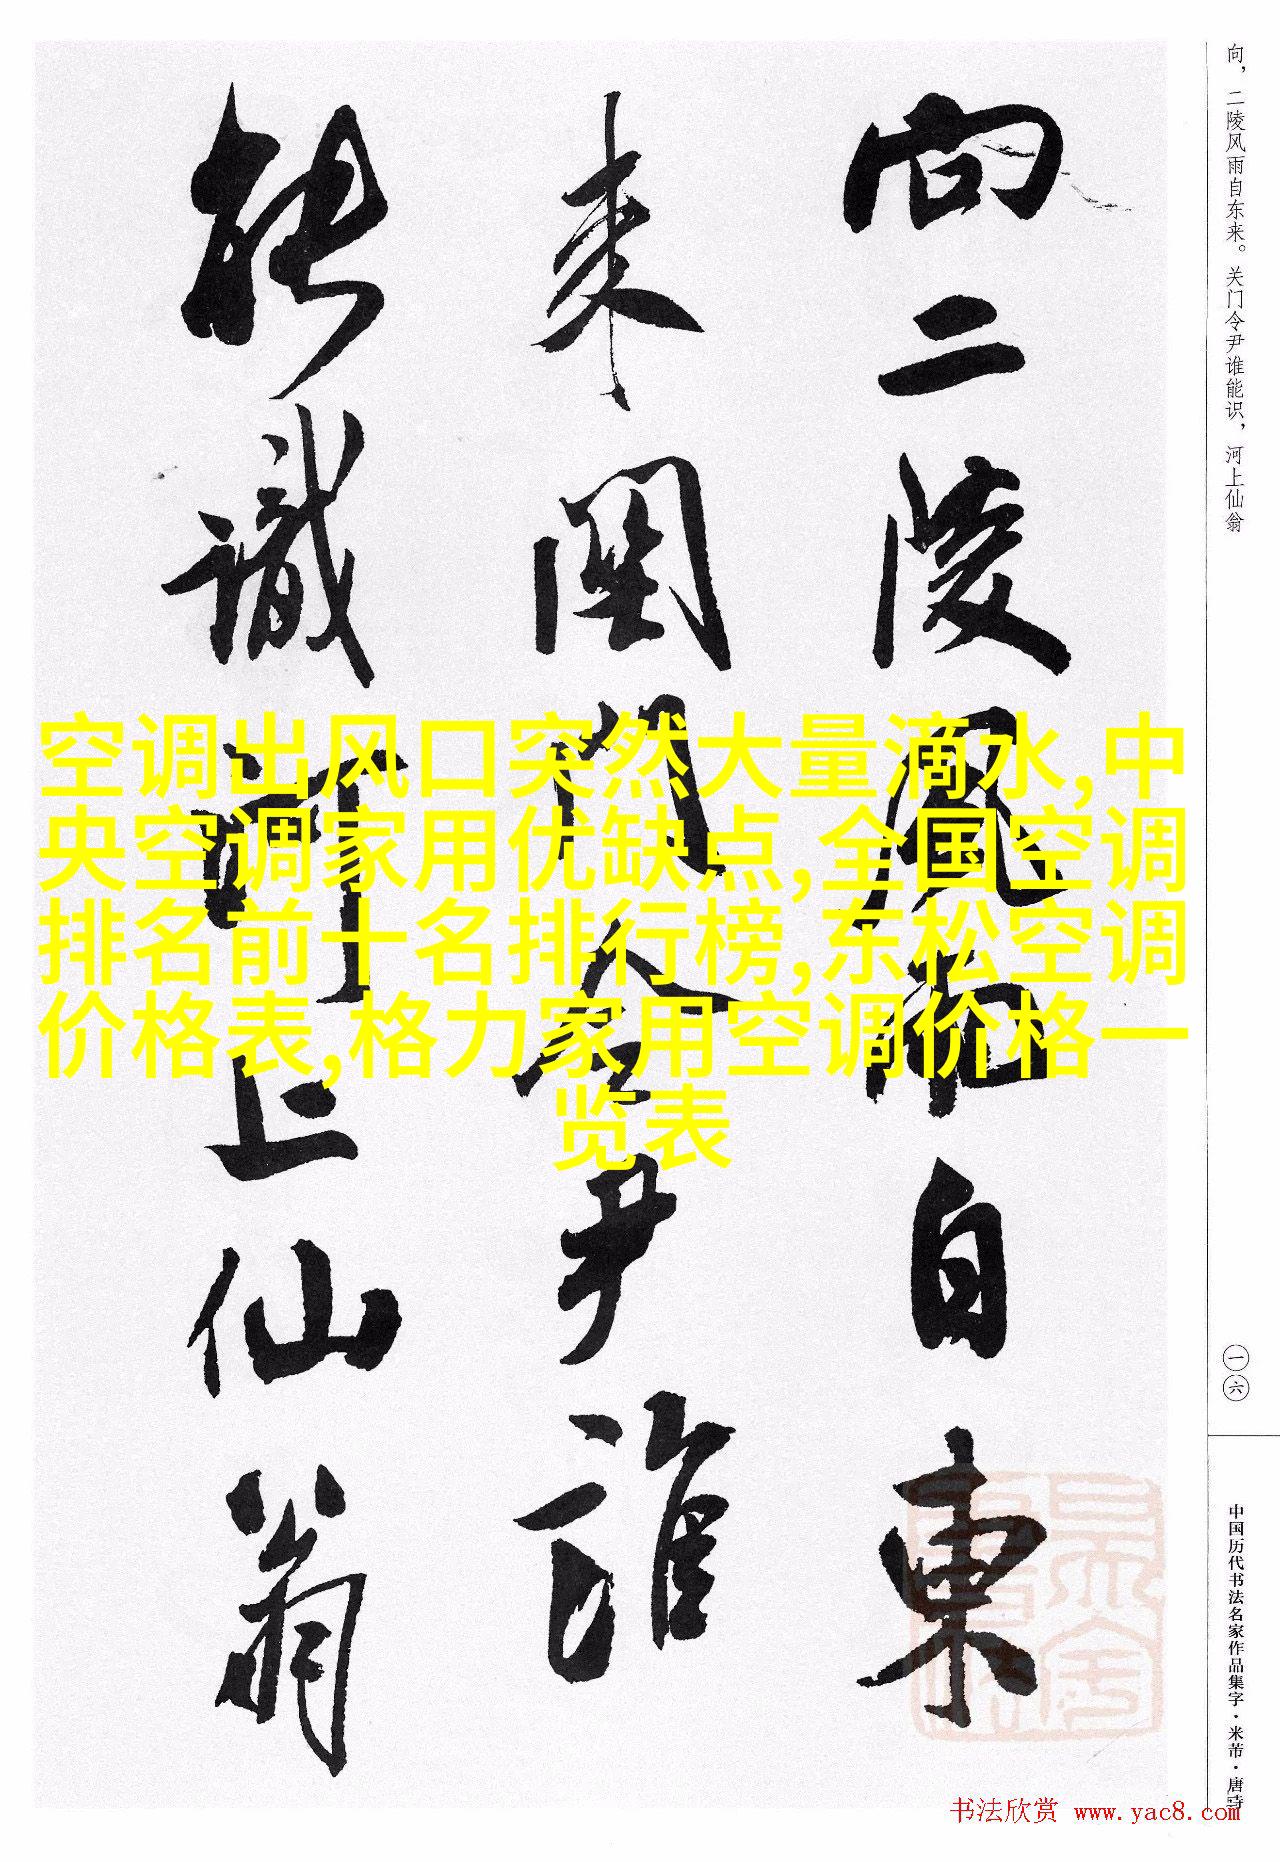 向，二陵风雨自东来。关门令尹谁能识，河上仙翁
向二陵风雨自東
来関門令尹誰
能識河上仙翁
空调出风口突然大量滴水,中
央空调家用优缺点,全国空调
排名前十名排行榜,东松空调
价格表,格力家用空调价格一
览表
一六
中国历代书法名家作品集字·米芾·唐诗
书法欣赏 www.yac8.com